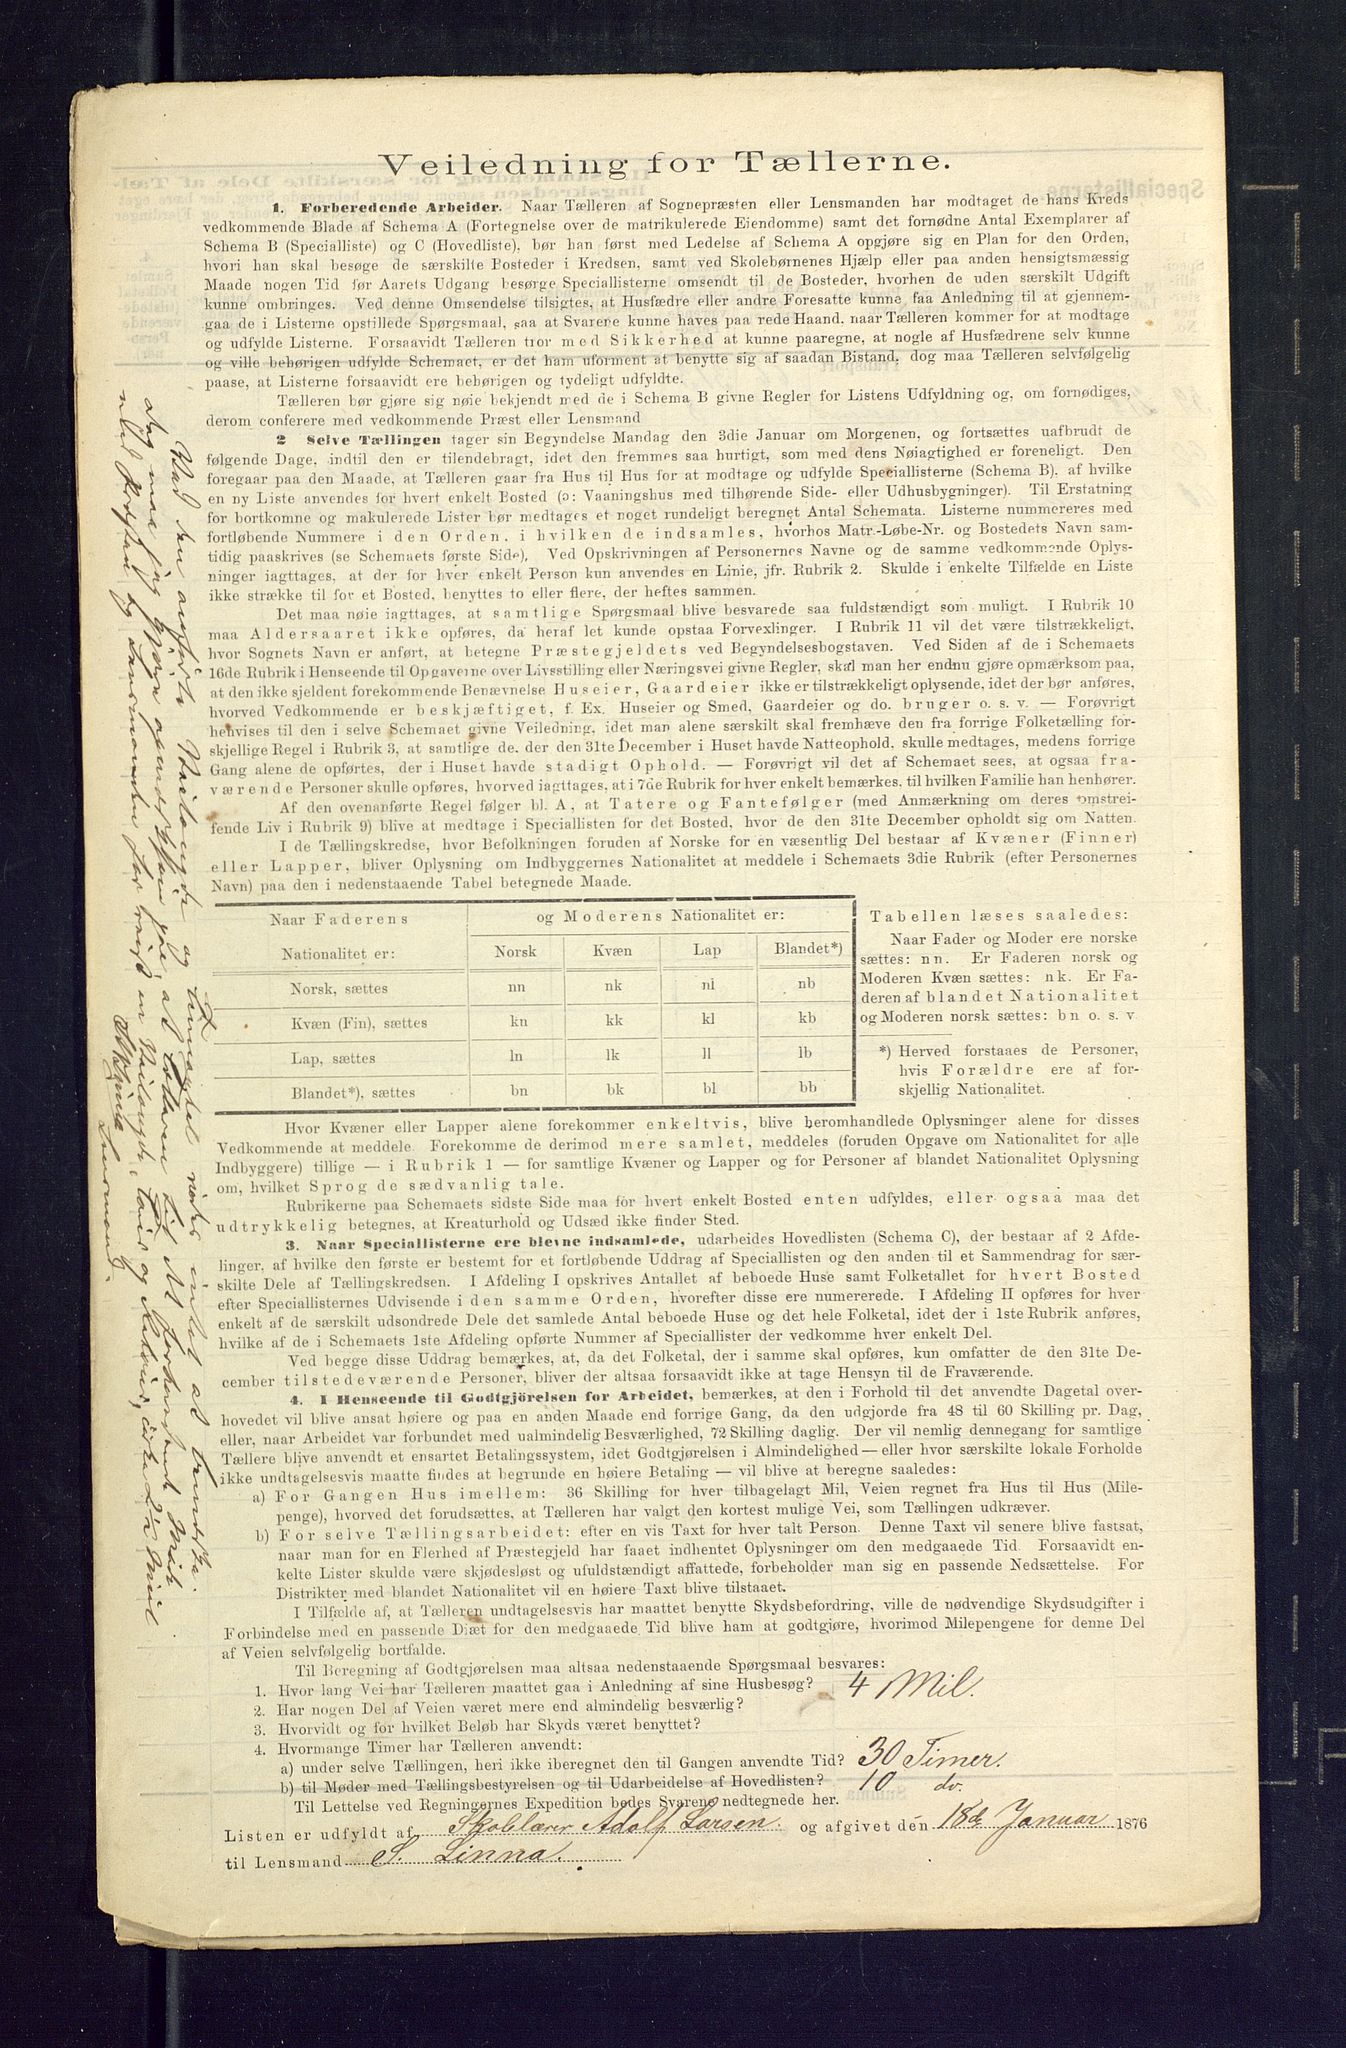 Veiledning for Tællerne.
1. Forberedende Arbeider. Naar Tælleren af Sognepræsten eller Lensmanden har modtaget de hans Kreds
vedkommende Blade af Schema A (Fortegnelse over de matrikulerede Eiendomme) samt det fornødne Antal Exemplarer af
Schema B (Specialliste) og C (Hovedliste), bør han først med Ledelse af Schema A opgjøre sig en Plan for den Orden,
hvori han skal besøge de særskilte Bosteder i Kredsen, samt ved Skolebørnenes Hjælp eller paa anden hensigtsmæssig
Maade nogen Tid før Aarets Udgang besørge Speciallisterne omsendt til de Bosteder, hvorhen de uden særskilt Udgift
kunne ombringes. Ved denne Omsendelse tilsigtes, at Husfædre eller andre Foresatte kunne faa Anledning til at gjennem-
gaa de i Listerne opstillede Spørgsmaal, saa at Svarene kunne haves paa rede Haand, naar Tælleren kommer for at modtage
og udfylde Listerne. Forsaavidt Tælleren tror med Sikkerhed at kunne paaregne, at nogle af Husfædrene selv kunne
og ville behørigen udfylde Schemaet, er det ham uforment at benytte sig af saadan Bistand, dog maa Tælleren selvfølgelig
paase, at Listerne forsaavidt ere behørigen og tydeligt udfyldte.
Tælleren bør gjøre sig nøie bekjendt med de i Schema B givne Regler for Listens Udfyldning og, om fornødiges,
derom conferere med vedkommende Præst eller Lensmand
2 Selve Tællingen tager sin Begyndelse Mandag den 3die Januar om Morgenen, og fortsættes uafbrudt de
følgende Dage, indtil den er tilendebragt, idet den fremmes saa hurtigt, som med dens Nøiagtighed er foreneligt. Den
foregaar paa den Maade, at Tælleren gaar fra Hus til Hus for at modtage og udfylde Speciallisterne (Schema B), af hvilke
en ny Liste anvendes for hvert enkelt Bosted (ɔ: Vaaningshus med tilhørende Side- eller Udhusbygninger). Til Erstatning
for bortkomne og makulerede Lister bør medtages et noget rundeligt beregnet Antal Schemata. Listerne nummereres med
fortløbende Nummere i den Orden, i hvilken de indsamles, hvorhos Matr.-Løbe-Nr. og Bostedets Navn sam-
tidig paaskrives (se Schemaets første Side). Ved Opskrivningen af Personernes Navne og de samme vedkommende Oplys-
ninger iagttages, at der for hver enkelt Person kun anvendes en Linie, jfr. Rubrik 2. Skulde i enkelte Tilfælde en Liste
ikke strække til for et Bosted, benyttes to eller flere, der heftes sammen.
Det maa nøie iagttages, at samtlige Spørgsmaal blive besvarede saa fuldstændigt som muligt. I Rubrik 10
maa Aldersaaret ikke opføres, da heraf let kunde opstaa Forvexlinger. I Rubrik 11 vil det være tilstrækkeligt,
hvor Sognets Navn er anført, at betegne Præstegjeldets ved Begyndelsesbogstaven. Ved Siden af de i Schemaets
16de Rubrik i Henseende til Opgaverne over Livsstilling eller Næringsvei givne Regler, skal man her endnu gjøre opmærksom paa,
at den ikke sjeldent forekommende Benævnelse Huseier, Gaardeier ikke er tilstrækkeligt oplysende, idet der bør anføres,
hvorved Vedkommende er beskjæftiget, f. Ex. Huseier og Smed, Gaardeier og do. bruger o. s. v. — Forøvrigt
henvises til den i selve Schemaet givne Veiledning, idet man alene særskilt skal fremhæve den fra forrige Folketælling for-
skjellige Regel i Rubrik 3, at samtlige de, der den 31te December i Huset havde Natteophold, skulle medtages, medens forrige
Gang alene de opførtes, der i Huset havde stadigt Ophold. — Forøvrigt vil det af Schemaet sees, at ogsaa fra-
værende Personer skulle opføres, hvorved iagttages, at i 7de Rubrik for hver enkelt bemærkes, til hvilken Familie han henhører.
Af den ovenanførte Regel følger bl. A, at Tatere og Fantefølger (med Anmærkning om deres omstrei-
fende Liv i Rubrik 9) blive at medtage i Speciallisten for det Bosted, hvor de den 31te December opholdt sig om Natten.
I de Tællingskredse, hvor Befolkningen foruden af Norske for en væsentlig Del bestaar af Kvæner (Finner)
eller Lapper, bliver Oplysning om Indbyggernes Nationalitet at meddele i Schemaets 3die Rubrik (efter Personernes
Navn) paa den i nedenstaaende Tabel betegnede Maade.
Naar Faderens og Moderens Nationalitet er:
Nationalitet er: Norsk Kvæn Lap Blandet*)
Norsk, sættes nn nk nl nb
Kvæn (Fin), sættes kn kk kl kb
Lap, sættes ln lk ll lb
Blandet*), sættes bn bk bl bb
Tabellen læses saaledes:
Naar Fader og Moder ere norske
sættes: nn. Er Faderen norsk og
Moderen Kvæn sættes: nk. Er Fa-
deren af blandet Nationalitet
og Moderen norsk sættes: bn o. s. v.
*) Herved forstaaes de Personer,
hvis Forældre ere af for-
skjellig Nationalitet.
Hvor Kvæner eller Lapper alene forekommer enkeltvis, blive heromhandlede Oplysninger alene for disses
Vedkommende at meddele. Forekomme de derimod mere samlet, meddeles (foruden Opgave om Nationalitet for alle
Indbyggere) tillige — i Rubrik 1 — for samtlige Kvæner og Lapper og for Personer af blandet Nationalitet Oplysning
om, hvilket Sprog de sædvanlig tale.
Rubrikerne paa Schemaets sidste Side maa for hvert enkelt Bosted enten udfyldes, eller ogsaa maa det
udtrykkelig betegnes, at Kreaturhold og Udsæd ikke finder Sted.
3. Naar Speciallisterne ere blevne indsamlede, udarbeides Hovedlisten (Schema C), der bestaar af 2 Afde-
linger, af hvilke den første er bestemt for et fortløbende Uddrag af Speciallisten og den anden til et Sammendrag for sær-
skilte Dele af Tællingskredsen. I Afdeling I opskrives Antallet af beboede Huse samt Folketallet for hvert Bosted
efter Speciallisternes Udvisende i den samme Orden, hvorefter disse ere numererede. I Afdeling II opføres for hver
enkelt af de særskilt udsondrede Dele det samlede Antal beboede Huse og det hele Folketal, idet der i 1ste Rubrik anføres,
hvilke af de i Schemaets 1ste Afdeling opførte Nummer af Speciallister der vedkomme hver enkelt Del.
Ved begge disse Uddrag bemærkes, at, da det Folketal, der i samme skal opføres, kun omfatter de den 31te De-
cember tilstedeværende Personer, bliver der altsaa forsaavidt ikke at tage Hensyn til de Fraværende.
4. I Henseende til Godtgjörelsen for Arbeidet, bemærkes, at den i Forhold til det anvendte Dagetal over-
hovedet vil blive ansat høiere og paa en anden Maade end forrige Gang, da den udgjorde fra 48 til 60 Skilling pr. Dag,
eller, naar Arbeidet var forbundet med ualmindelig Besværlighed, 72 Skilling daglig. Der vil nemlig dennegang for samtlige
Tællere blive anvendt et ensartet Betalingssystem, idet Godtgjørelsen i Almindelighed — eller hvor særskilte lokale Forholde
ikke undtagelsesvis maatte findes at begrunde en høiere Betaling — vil blive at beregne saaledes:
a) For Gangen Hus imellem: 36 Skilling for hver tilbagelagt Mil, Veien regnet fra Hus til Hus (Mile-
penge), hvorved det forudsættes, at Tælleren har valgt den kortest mulige Vei, som Tællingen udkræver.
b) For selve Tællingsarbeidet: efter en vis Taxt for hver talt Person. Denne Taxt vil senere blive fastsat,
naar man for en Flerhed af Præstegjeld har faaet indhentet Oplysninger om den medgaaede Tid. Forsaavidt en-
kelte Lister skulde være skjødesløst og ufuldstændigt affattede, forbeholder man sig en passende Nedsættelse. For
Distrikter med blandet Nationalitet vil en høiere Taxt blive tilstaaet.
I Tilfælde af, at Tælleren undtagelsesvis har maattet benytte Skydsbefordring, ville de nødvendige Skydsudgifter i
Forbindelse med en passende Diæt for den medgaaede Tid blive ham at godtgjøre, hvorimod Milepengene for denne Del
af Veien selvfølgelig bortfalde.
Til Beregning af Godtgjørelsen maa altsaa nedenstaaende Spørgsmaal besvares:
1. Hvor lang Vei har Tælleren maattet gaa i Anledning af sine Husbesøg? 4 Mil.
2. Har nogen Del af Veien været mere end almindelig besværlig?
3. Hvorvidt og for hvilket Beløb har Skyds været benyttet?
4. Hvormange Timer har Tælleren anvendt:
a) under selve Tællingen, heri ikke iberegnet den til Gangen anvendte Tid? 30 Timer.
b) til Møder med Tællingsbestyrelsen og til Udarbeidelse af Hovedlisten? 10 do.
Til Lettelse ved Regningernes Expedition bedes Svarene nedtegnede her.
Listen er udfyldt af Skolelærer Adolf Larsen. og afgivet den 18de Januar 1876
til Lensmand S. Linna.